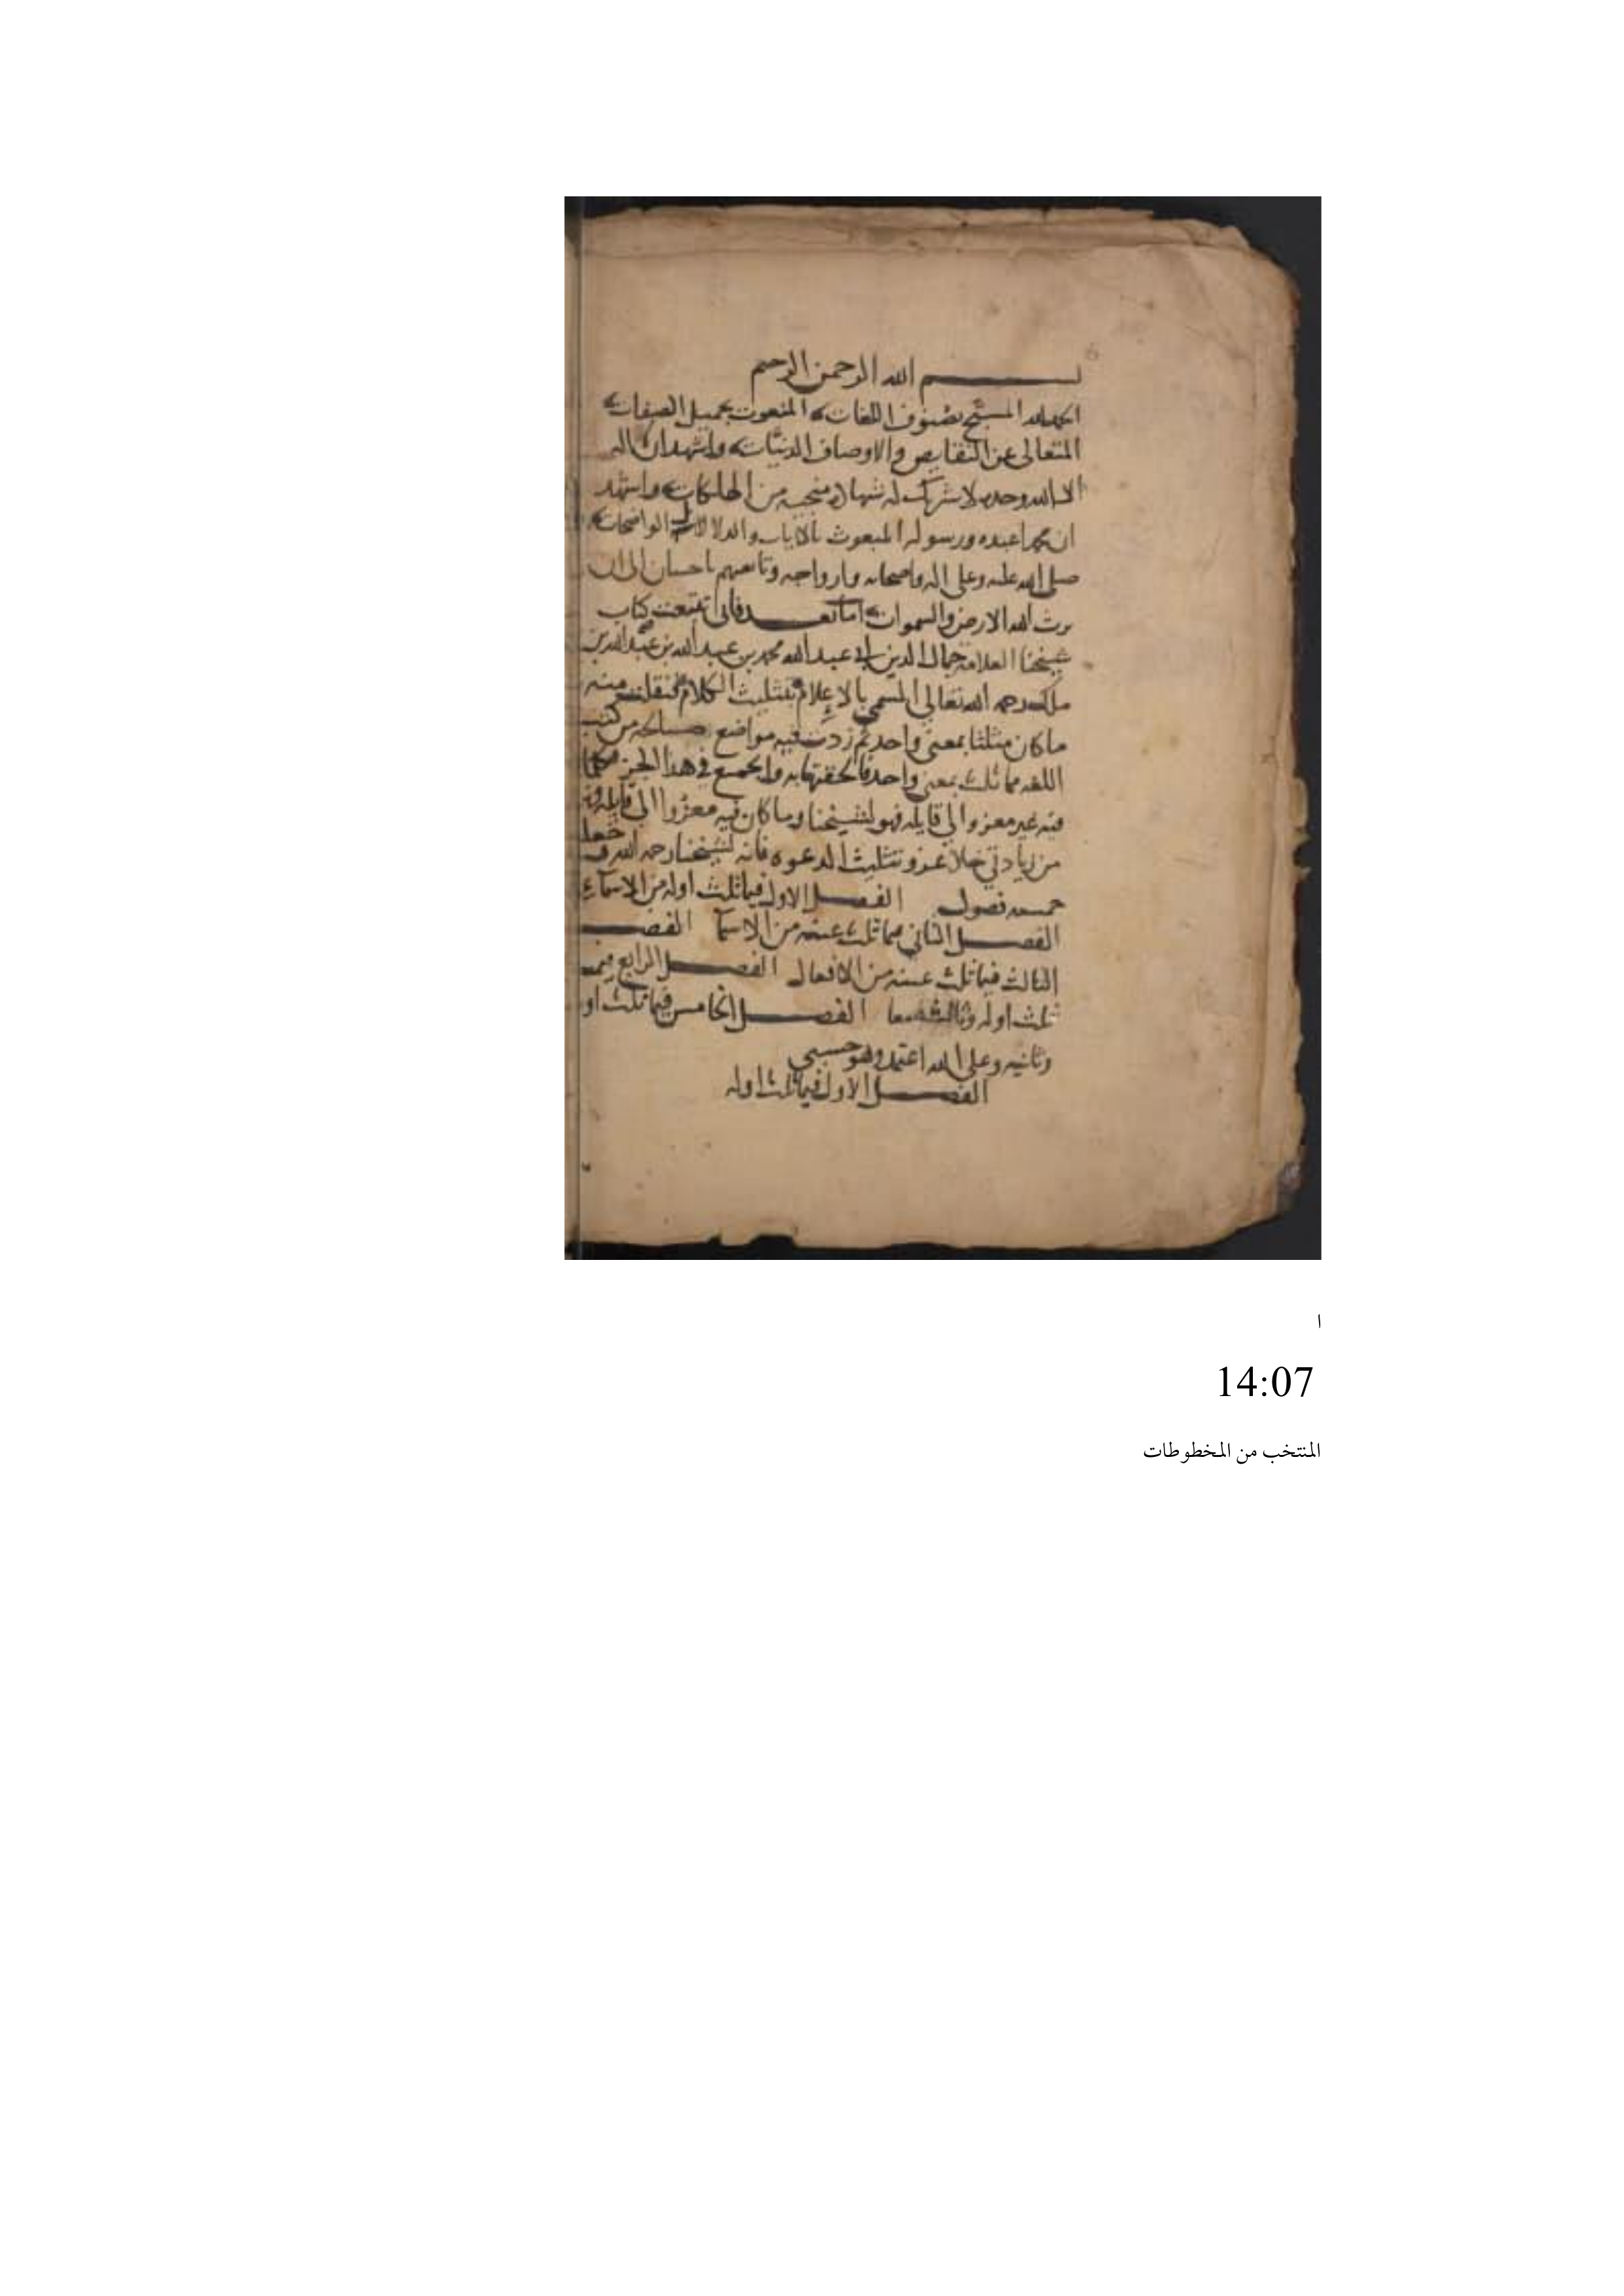 بسم الله الرحمن الرحيم
الحمد لله المسبح بصنوف اللغات المنعوت بجميل الصفات
المتعالي عن النقايص والاوصاف الدنيات واشهد ان لا اله
الا الله وحده لا شريك له شهادة منجيه من الهلكات واشهد
ان محمدا عبده ورسوله المبعوث بالايات والدلالات الواضحات
صلى الله عليه وعلى اله واصحابه وازواجه وتابعيهم باحسان الى ان
يرث الله الارض والسموات اما بعد فاني تتبعت كتاب
شيخنا العلامه جمال الدين ابي عبد الله محمد بن عبد الله بن عبد الله بن
ملك رحمه الله تعالى المسمى بالاعلام بتثليث الكلام فنقلت منه
ما كان مثلثا بمعنى واحد ثم زدت فيه مواضع من كتب
اللغه مما ثلث بمعنى واحد فالحقتها به والجميع في هذا الجز فكلما
فيه غير معزو الى قايله فهو لشيخنا وما كان فيه معزوا الى قايله فهو
من زيادتي خلا عزو تثليث الدعوه فانه لشيخنا رحمه الله
خمسه فصول الفصل الاول فيما ثلث اوله من الاسماء
الفصل الثاني فيما ثلث عينه من الاسما الفصل
الثالث فيما ثلث عينه من الافعال الفصل الرابع فيما
ثلث اوله وثالثه معا الفصل الخامس فيما ثلث او
وثانيه وعلى الله اعتمد وهو حسبي
الفصل الاول فيما ثلث اوله
ا
14:07
المنتخب من المخطوطات